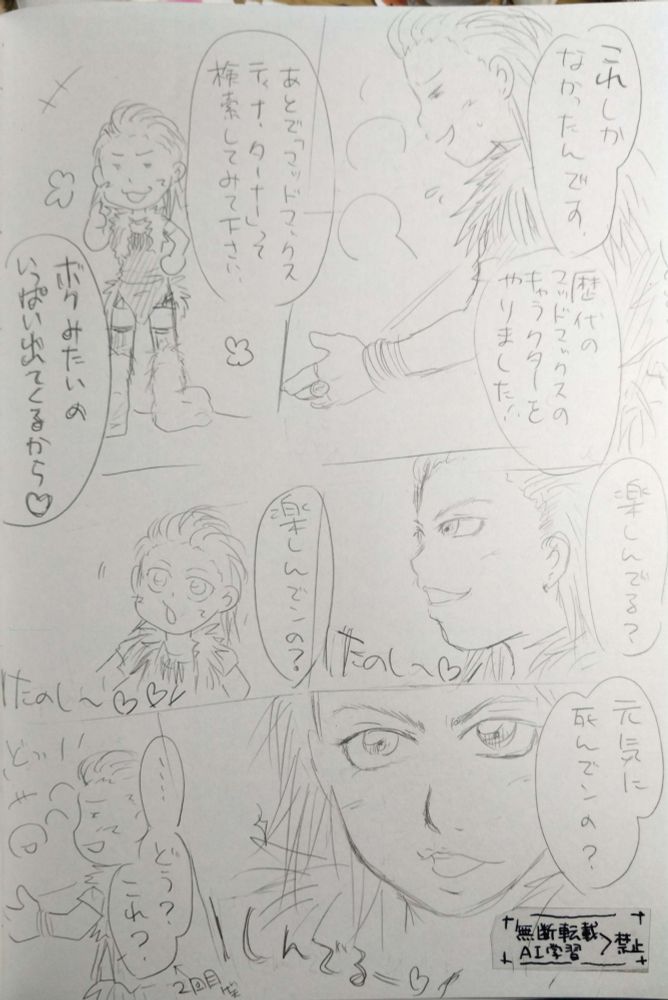 これしか
なかったんです。
歴代の
マッドマックスの
キャラクターを
やりました!!
あとで「マッドマックス
ティナ・ターナー」って
検索してみて下さい。
ボクみたいの
いっぱい出てくるから♡
楽しんでる?
たのし〜♡
楽しんでンの?
たのし〜♡♡
元気に
死んでンの?
しんでるー♡
……
どう?
これ?
2回目
どっ!!
無断転載
AI学習
禁止